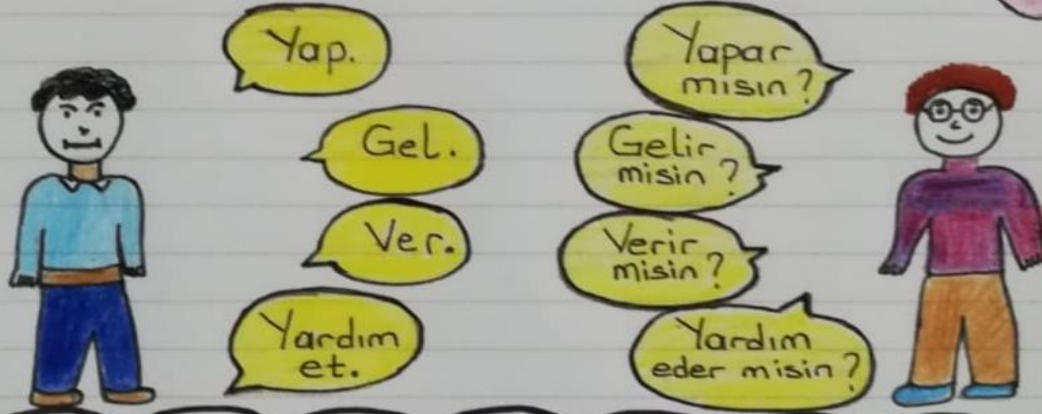 Yap.
Gel.
Ver.
Yardım
et.
Yapar
mısın?
Gelir
misin?
Verir
misin?
Yardım
eder misin?